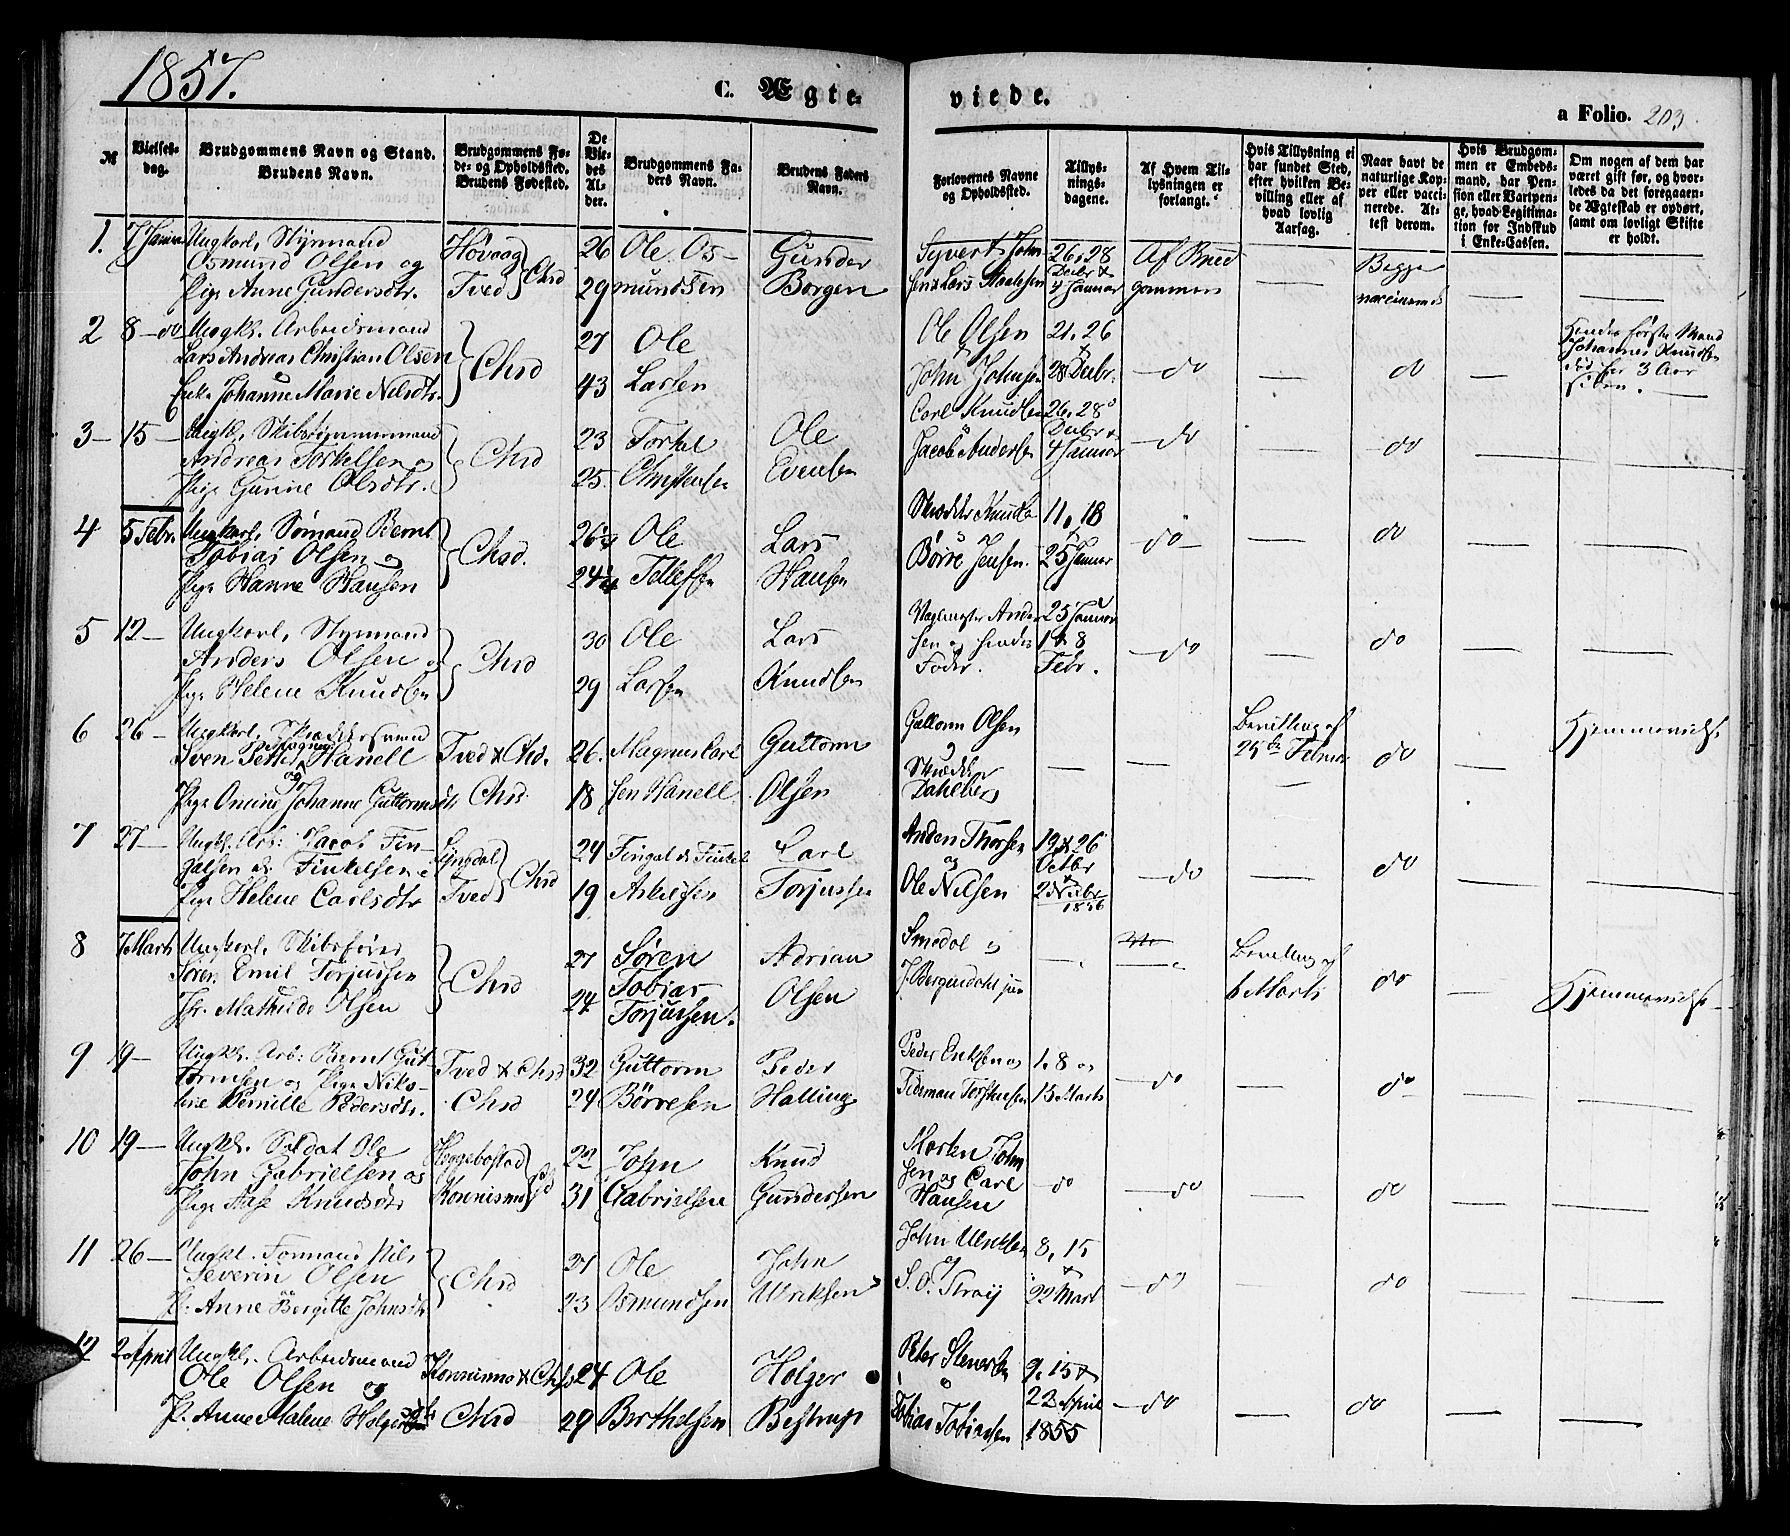 1857.
C. Ægte-
viede.
a Folio. 203
№
Vielses-
dag.
Brudgommens Navn og Stand.
Brudens Navn.
Brudgommens Fø-
de- og Opholdssted.
Brudens Fødested.
De
Vie-
des
Al-
der.
Brudgommens Fa-
ders Navn.
Brudens Faders
Navn.
Forlovernes Navne
og Opholdssted.
Tillys-
nings-
dagene.
Af Hvem Til-
lysningen er
forlangt.
Hvis Tillysning ei
har fundet Sted,
efter hvilken Be-
villing eller af
hvad lovlig
Aarsag.
Naar havt de
naturlige Kop-
per eller vacci-
nerede. At-
test derom.
Hvis Brudgom-
men er Embeds-
mand, har Pen-
sion eller Vartpen-
ge, hvad Legitima-
tion for Indskud
i Enke-Cassen.
Om nogen af dem har
været gift før, og hvor-
ledes da det foregaaen-
de Ægteskab er ophørt,
samt om lovligt Skifte
er holdt.
1. 7 Januar Ungkarl, Styrmand Høvaag 26 Ole Os- Gunder Syvert John 26, 28 Af Brud- Begge
Osmund Olsen og Chrd Decbr &
Pige Anne Gundersdtr. Tved 29 mundsen Borgen sen & Lars 4 Januar gommen — vaccinerede — —
2 8 — do Ungk. Arbeidsmand 27 Ole Ole Olsen 21, 26 Hendes første Mand
Lars Andreas Christian Olsen Chrd & Johannes Knudsen
Enke Johanne Marie Nilsdtr. 43 Larsen John Johnsen 28 Decbr. — do — do — død for 3 Aar
siden.
3 — 15 — Ungk. Skibstømmermand 23 Torkel Ole Carl Knudsen 26, 28
Andreas Torkelsen og Chrd & Decbr &
Pige Gunne Olsdtr. 25. Christensen Evensen Jacob Andersen 4 Januar — do — do — —
4 5 Febr. Ungkarl, Sømand Bernt 26 Ole Lars 11, 18
Tobias Olsen og Chrd. &
Pige Hanne Hansen 24 Tellefsen Hansen Børre Jensen. 25 Januar — do — — do — —
5 12 — Ungkarl, Styrmand 30 Ole Lars 25 Januar
Anders Olsen og Chrd sen og hendes 1 & 8 — do — do — —
Pige Helene Knudsen 29 Larsen Knudsen Fader. Febr.
6 26 — Ungkarl, Skræddersvend Guttorm Olsen Bevilling af Hjemmevielse
Sven Petter Magnus Hanell Tved & Chrd. 26. Magnus Carl Guttorm og 25de Februar do —
og Skrædder
Pige Oneine Johanne Guttormsdtr Chrd. 18 sen Hanell. Olsen Dahlberg — —
7 27 — Ungk. Arb: Jacob Fin- Lyngdal 24 Fingal & Finkel Carl Anders Thorsen 19 & 26
galsen & Finkelsen og Chrd og Octbr & do
Pige Helene Carlsdtr Tved 19 Askildsen Torjussen Ole Nilsen 2 Novbr — do — — —
1856
8 7 Marts Ungkarl, Skibsfører 27 Søren Adrian Smedal og Bevilling af
Søren Emil Torjussen Chrd Tobias — — do — Hjemmevielse
Jfr. Mathilde Olsen 24 Torjussen. Olsen J. Bergendahl jun 6 Marts
9 19 — Ungk. Arb: Bernt Gut- Tved & Chrd 32 Guttorm Peder Peder Eriksen og 1, 8 og
tormsen og Pige Niko- — do — do — —
line Pernille Pedersdtr. Chrd 24 Børresen Halling Tideman Torstensen 15 Marts
10 19 — Ungk. Soldat Ole Heggebostad 22 John Knud Morten John
John Gabrielsen og sen og Carl do — do — do — —
Pige Aase Knudsdtr 31 Gabrielsen Gundersen Hansen
11 26 — Ungk. Tømmand Nils 21 Ole John John Ulriksen 8, 15
Severin Olsen Chrd og & — do — do — —
P. Anne Bergitte Johnsdtr 23 Osmundsen Ulriksen S. O. Traij 22 Mart
12 2 April Ungk. Arbeidsmand & Chrd 24 Ole Holger Peter 9, 15 &
Ole Olsen og & 22 April — do — do — —
P. Anne Malene Holgersdtr Chrd 29 Berthelsen Bestrup Tobias Tobiassen 1855